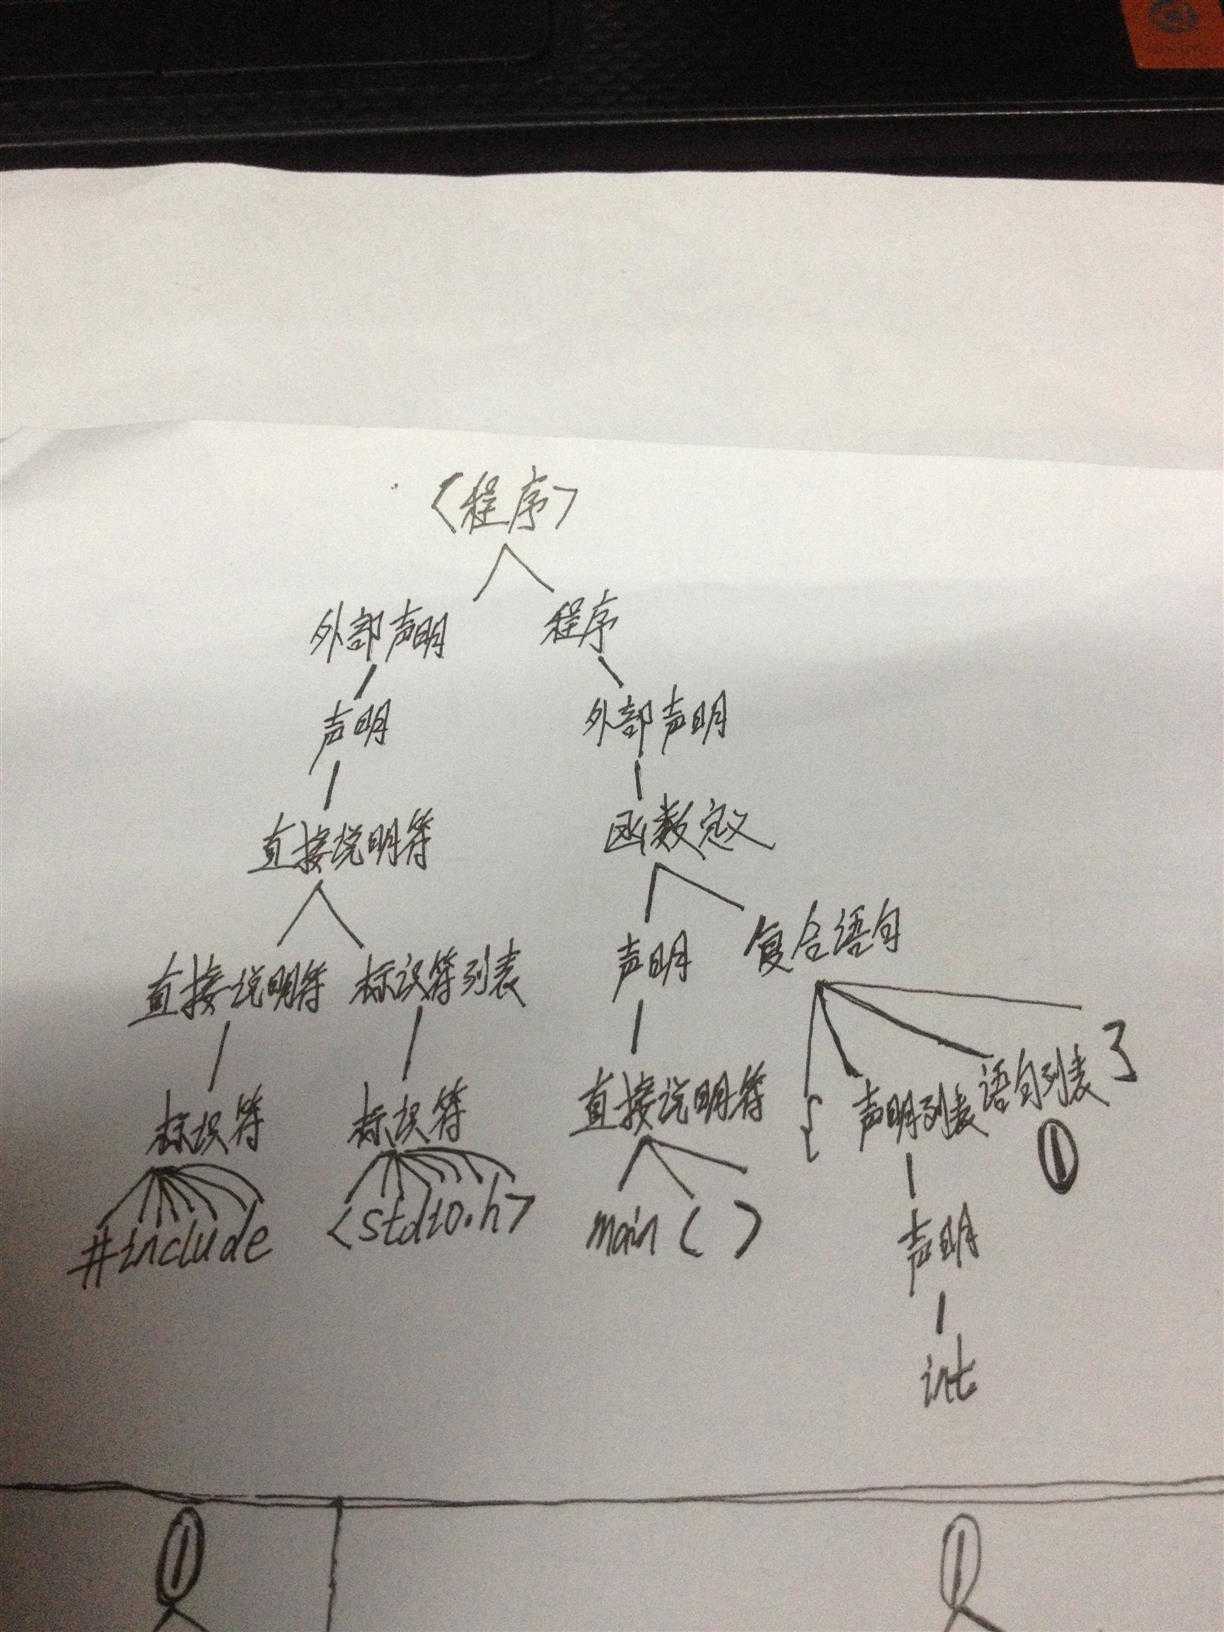 <程序>
外部声明 程序
声明 外部声明
直接说明符 函数定义
直接说明符 标识符列表 声明 复合语句
标识符 标识符 直接说明符 { 声明列表 语句列表 }
①
#include <stdio.h> main ( ) 声明
int
① ①